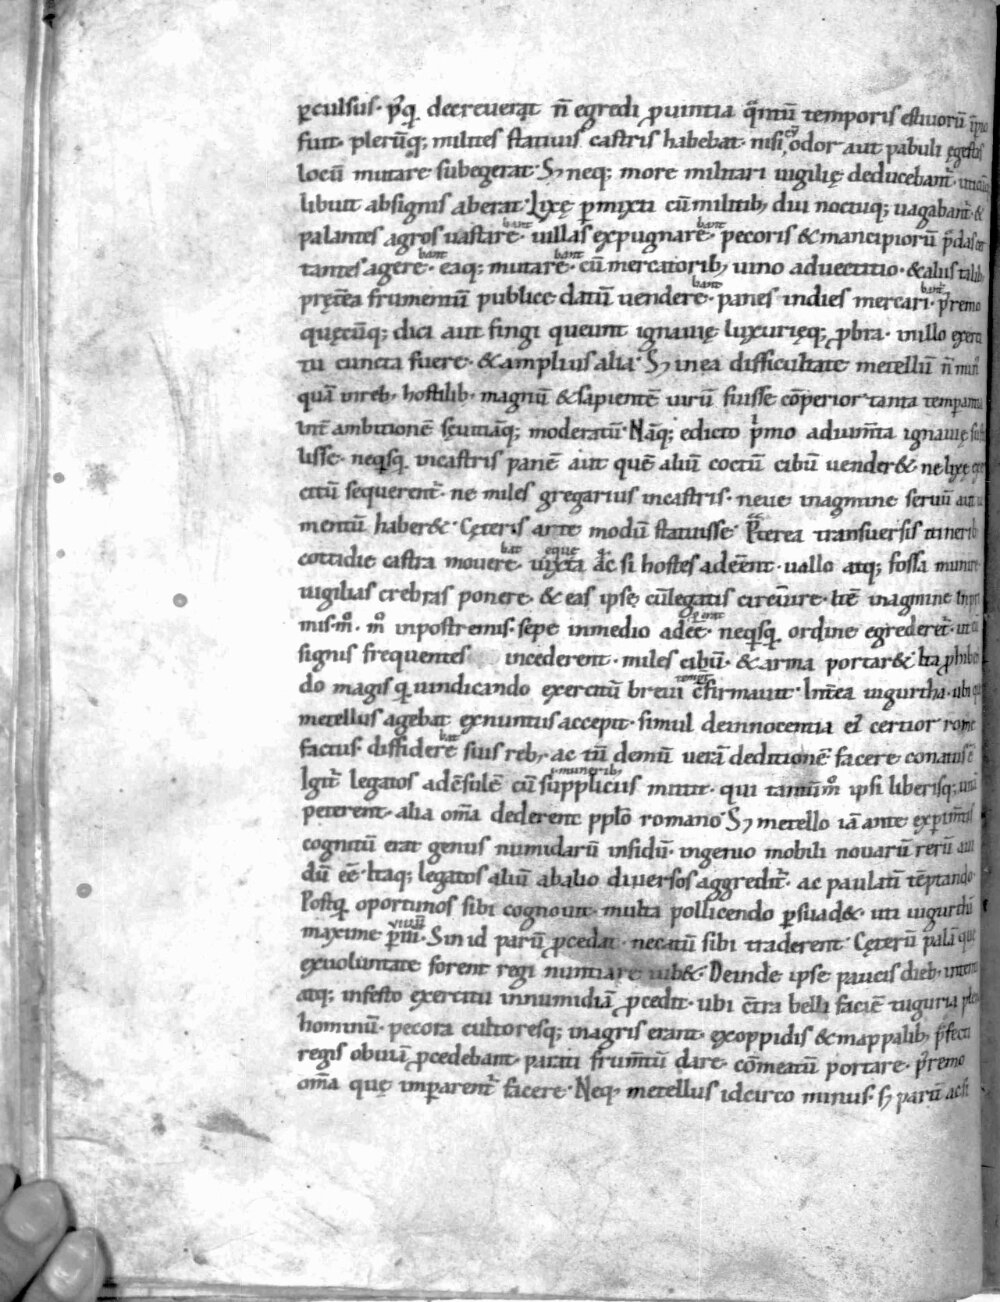 ꝑculsus· pꝰqͣ decreuerat̄ n̄ egredi ꝓuintia qͣntū temporis estiuorū īꝑio
fuit· plerūq; milites statiuis castris habebat· nisi cū odor aut pabuli egestas
locū mutare subegerat· Sꝫ neq; more militari uigilię deducebant᷑· uti cuiq;
libuit absignis aberat· Lixę ꝑmixti cū militibꝫ diu noctuq; uagabant᷑· &
palantes agros uastare· uillas expugnare· pecoris & mancipiorū p̄das cer
tantes agere· eaq; mutare· cū mercatoribꝫ uino aduectitio· & aliis talibꝫ
pręt̄ea frumentū publice datū uendere· panes indies mercari· p̾remo
quęcūq; dici aut fingi queunt ignauię luxurięq; ꝓbra· inillo exerci
tu cuncta fuere· & amplius alia· Sꝫ inea difficultate metellū n̄ min᷒
quā inrebꝫ hostilibꝫ magnū & sapientē uirū fuisse cōperior· tanta temperantia
int̄ ambitionē sęuitiāq; moderatū· Nāq; edicto pͥmo adiumt̄a ignauię sustu
lisse· neqͥsqͣ incastris panē aut quē aliū coctū cibū uender&· ne lixę exer
citū sequerent᷑· ne miles gregarius incastris· neue inagmine seruū aut iu
mentū haber&· Cęteris arte modū statuisse· P̄terea transuersis itineribꝫ
cottidie castra mouere· iuxta ac si hostes adeēent· uallo atq; fossa munire·
uigilias crebras ponere· & eas ipsę cūlegatis circūire· Itē inagmine inpri
mis·mͦ· mͦ inpostremis· sepe inmedio adeē· neqͥsqͣ ordine egrederet᷑· ut cū
signis frequentes incederent· miles cibū· & arma portar&· Ita ꝓhiben
do magis qͣ uindicando exercitū breui c̄firmauit· Int̄ea iugurtha· ubi que
metellus agebat exnuntiis accepit· simul deinnocentia ei᷒ certior rome
factus· diffidere suis rebꝫ, ac tū demū uerā deditionē facere conatus ē·
Igit᷑ legatos adc̄sulē cū suppliciis mittit· qui tantūmͦ ipsi liberisq; uitā
peterent· alia om̄a dederent pplo romano· Sꝫ metello iā ante experimt̄is
cognitū erat genus numidarū infidū· ingenio mobili nouarū rerū aui
dū eē· Itaq; legatos aliū abalio diuersos aggredit᷑· ac paulatī tēptando·
Postqͣ oportunos sibi cognouit· multa pollicendo ꝑsuad&· uti iugurthā
maxime
exuoluntate forent regi nuntiare iub&· Deinde ipse paucis diebꝫ· intento
atq; infesto exercitu innumidiā ꝓcedit· ubi c̄tra belli faciē tuguria plena
hominū· pecora cultoresq; inagris erant· exoppidis & mappalibꝫ p̄fecti
regis obuiī ꝓcedebant· parati frumt̄ū dare· cōmeatū portare· p̾remo
om̄a quę imꝑarent᷑ facere· Neqꝫ metellus idcirco minus· sꝫ parit̄ ac si